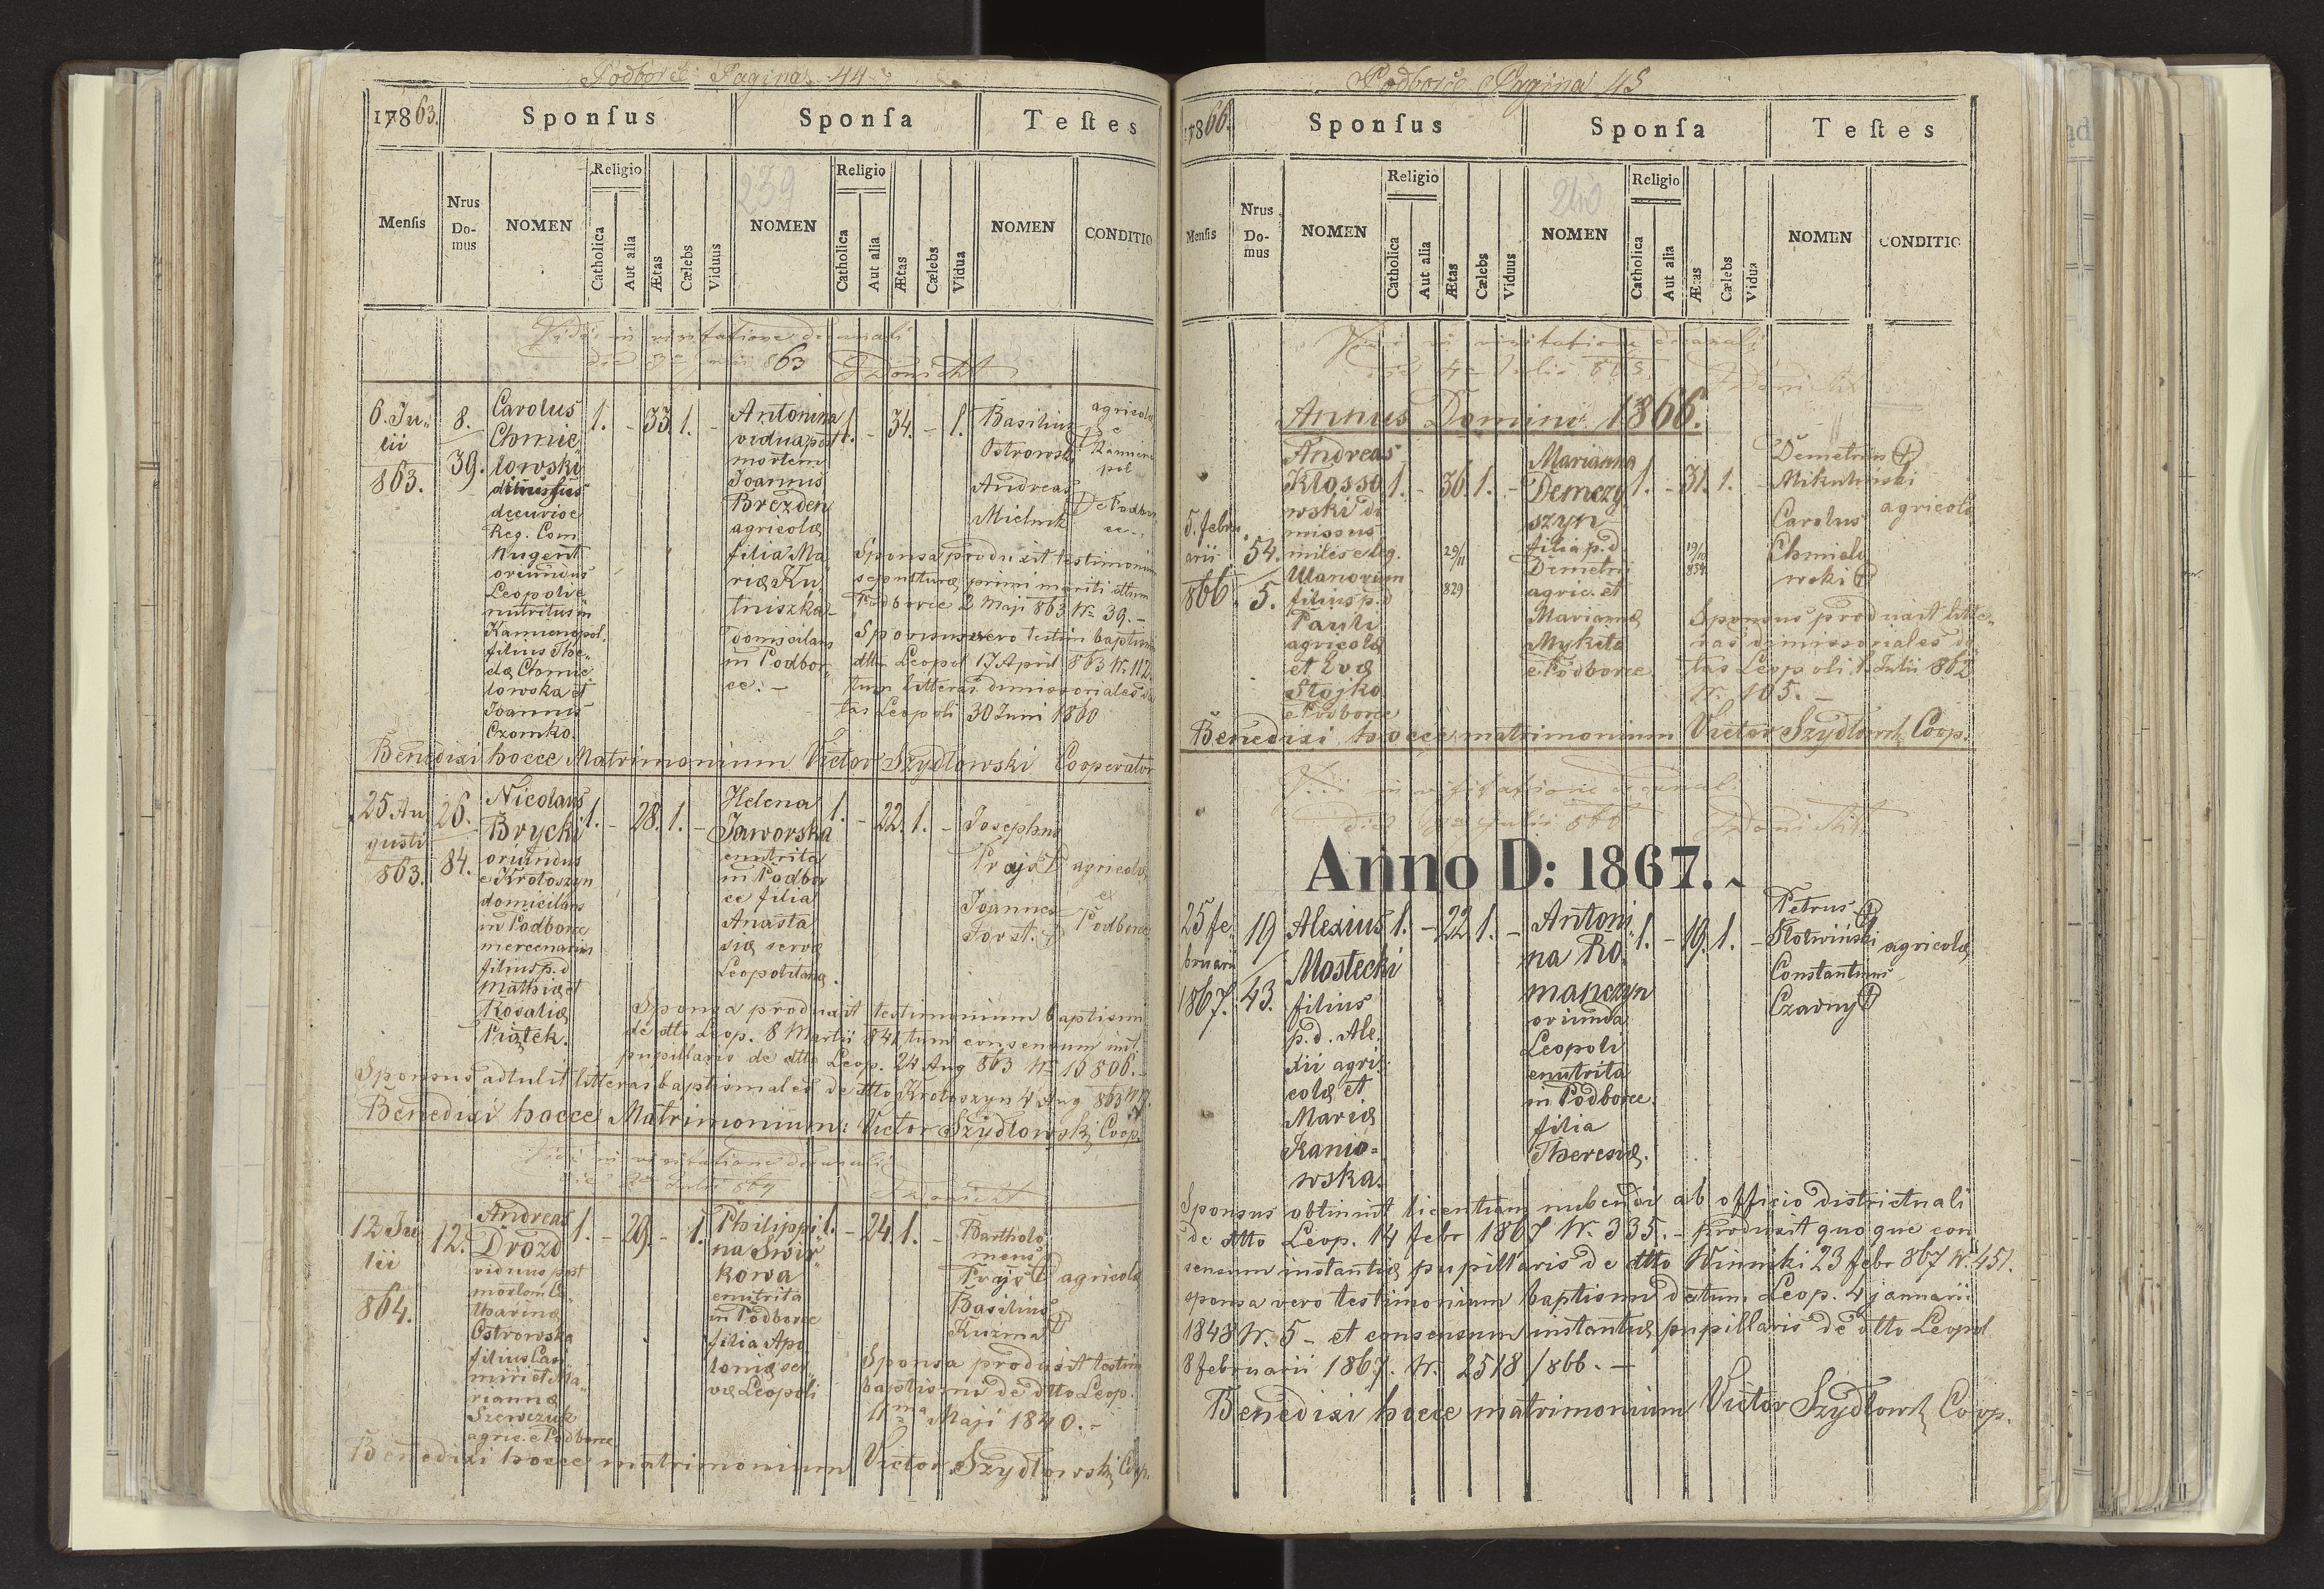 Podborce Pagina 44
17863.
Sponſus
Sponſa
Teſtes
Menſis
Nrus Do-mus
NOMEN
Religio
Catholica
Aut alia
Ætas
Cælebs
Viduus
239
NOMEN
Religio
Catholica
Aut alia
Ætas
Cælebs
Vidua
NOMEN
CONDITIO
Vidi in visitatione decanali
die
863
6. Ju„
lii
863.
8.
39.
Carolus
Chmie
lowski
dimissus
decurio e
Reg. Com
Nugent
oriundus
Leopoli e
nutritus in
Kamienopol.
filius The„
clæ Chmie„
lowska et
Joannis
Czomko.
1. - 33. 1. -
Antonina
vidua post
mortem
Joannis
Brezden
agricolæ
filia Ma„
riæ Ku„
tniszka -
domicilans
in Podbor„
ce. -
1. - 34. - 1.
Basilius
Ostrowski
Andreas
Mielnik
agricola
e
Kamieno
pol
De Podbor„
ce.
Sponsa produxit testimonium
sepulturæ primi mariti dttum
Podborce 2 Maji 863 Nr 39. -
Sponsus vero testim baptism
dttm Leopol 17 April 863 Nr. 112.
tum litteras dimissoriales da
tas Leopoli 30 Juni 1860
Benedixi hocce Matrimonium Victor Szydlowski Cooperator
25 Au
gusti
863.
26.
84.
Nicolaus
Brycki
oriundus
e Krotoszyn
domicilans
in Podborce
mercenarius
filius p. d
Mathiæ et
Rosaliæ
Piątek.
1. - 28. 1. -
Helena
Jaworska
enutrita
in Podbor
ce filia
Anasta
siæ servæ
Leopolitanæ.
1. - 22. 1. -
Josephus
Prajs
Joannes
Forst.
agricolæ
ex
Podborce
Sponsa produxit testimonium baptism
de dtto Leop. 8 Martii 841 tum consensum int.
pupillaris de dtto Leop. 24 Aug 863 Nr 16806. -
Sponsus adtulit litteras baptismales de dtto Krotoszyn 4 Aug 863
Benedixi hocce Matrimonium: Victor Szydlowski Coop.
Vidi in visitatione decanali
die Julii 864
12 Ju
lii
864.
12.
Andreas
Drozd
viduus post
mortem Ca„
tharinæ
Ostrowska
filius Casi
miri et Ma„
riannæ
Szewczuk
agric. e Podborce
1. - 29. - 1.
Philippi
na Swir„
kowa
enutrita
in Podborce
filia Apo
loniæ ser„
væ Leopoli
1. - 24. 1. -
Bartholo
meus
Prajs
Basilius
Kuzma
agricolæ
Sponsa produxit testim
baptismi de dtto Leop.
11ma Maji 1840. -
Benedixi hocce matrimonium Victor Szydlowski Coop.
Podborce Pagina 45
17866.
Sponſus
Sponſa
Teſtes
Menſis
Nrus Do-mus
NOMEN
Religio
Catholica
Aut alia
Ætas
Cælebs
Viduus
240
NOMEN
Religio
Catholica
Aut alia
Ætas
Cælebs
Vidua
NOMEN
CONDITIO
Vidi in visitatione decanali
die 4 Julii 865
Annus Domini 1866.
5. febru
arii
866.
54.
5.
Andreas
Klosso
wski di
missus
miles e leg.
Ulanorum
filius p. d
Pauli
agricolæ
et Evæ
Stojko
e Podborce
1. - 36. 1. -
29/11
829
Marianna
Demczy„
szyn
filia p. d.
Demetrii
agric. et
Mariannæ
Mykita
e Podborce
1. - 31. 1. -
19/10
834
Demetrius
Mikulinski
Carolus
Chmielo
wski
agricolæ
Sponsus produxit litte„
ras dimissoriales da
tas Leopoli 1. Julii 862
Nr. 105. -
Benedixi hocce matrimonium Victor Szydlowski Coop.
Vidi in visitatione decanal.
die Julii 866
Anno D: 1867.
25 fe„
bruarii
1867.
19
43.
Alexius
Mostecki
filius
p. d. Ale„
xii agri„
colæ et
Mariæ
Kanio-
wska.
1. - 22 1. -
Antoni„
na Ro„
manczyn
oriunda
Leopoli
enutrita
in Podborce.
filia
Theresiæ.
1. - 19. 1. -
Petrus
Slotwiński
Constantinus
Czarny
agricolæ
Sponsus obtinuit licentiam nubendi ab officio districtuali
de dtto Leop. 14 febr 1867 Nr. 335. - produxit quoque con
sensum instantiæ pupillaris de dtto Winniki 23 febr 867 Nr. 451.
sponsa vero testimonium baptismi datum Leop. 4 januarii
1848 Nr. 5 - et consensum instantiæ pupillaris de dtto Leopol
8 februarii 1867. Nr. 2518/866. -
Benedixi hocce matrimonium Victor Szydlowski Coop.